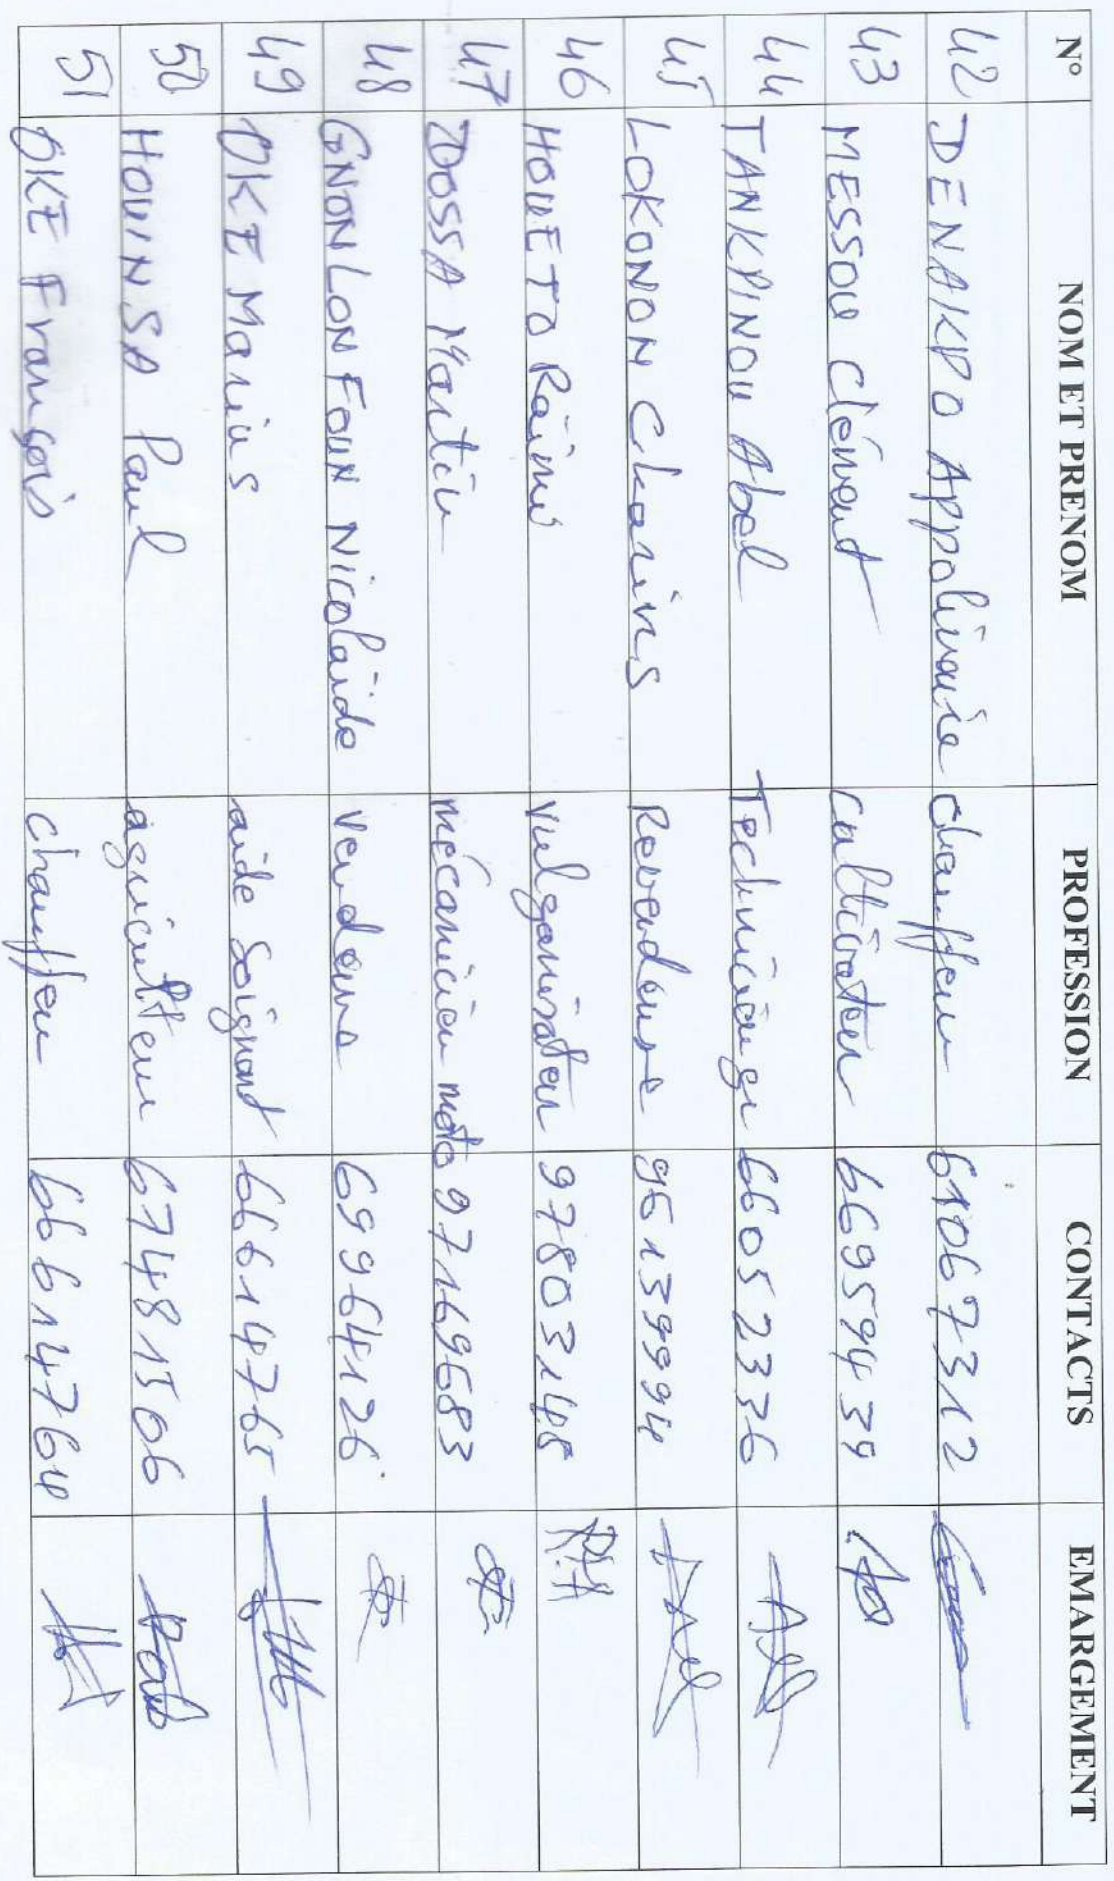 N° NOM ET PRENOM PROFESSION CONTACTS EMARGEMENT
42 DENAKPO Appolinaire chauffeur 61067312
43 MESSOU Clément cultivateur 66959439
44 TANKPINOU Abel Technicien 66052336
45 LOKONON Charins Revendeuse 95139994
46 HOUETO Raimi vulgarisateur 97803148 R.A
47 DOSSA Martin mécanicien moto 97169683
48 GNONLONFOUN Nicolaïde vendeuse 69964126
49 OKE Marius aide soignant 66614765
50 HOUINSA Paul agriculteur 67481506
51 OKE François chauffeur 66614764